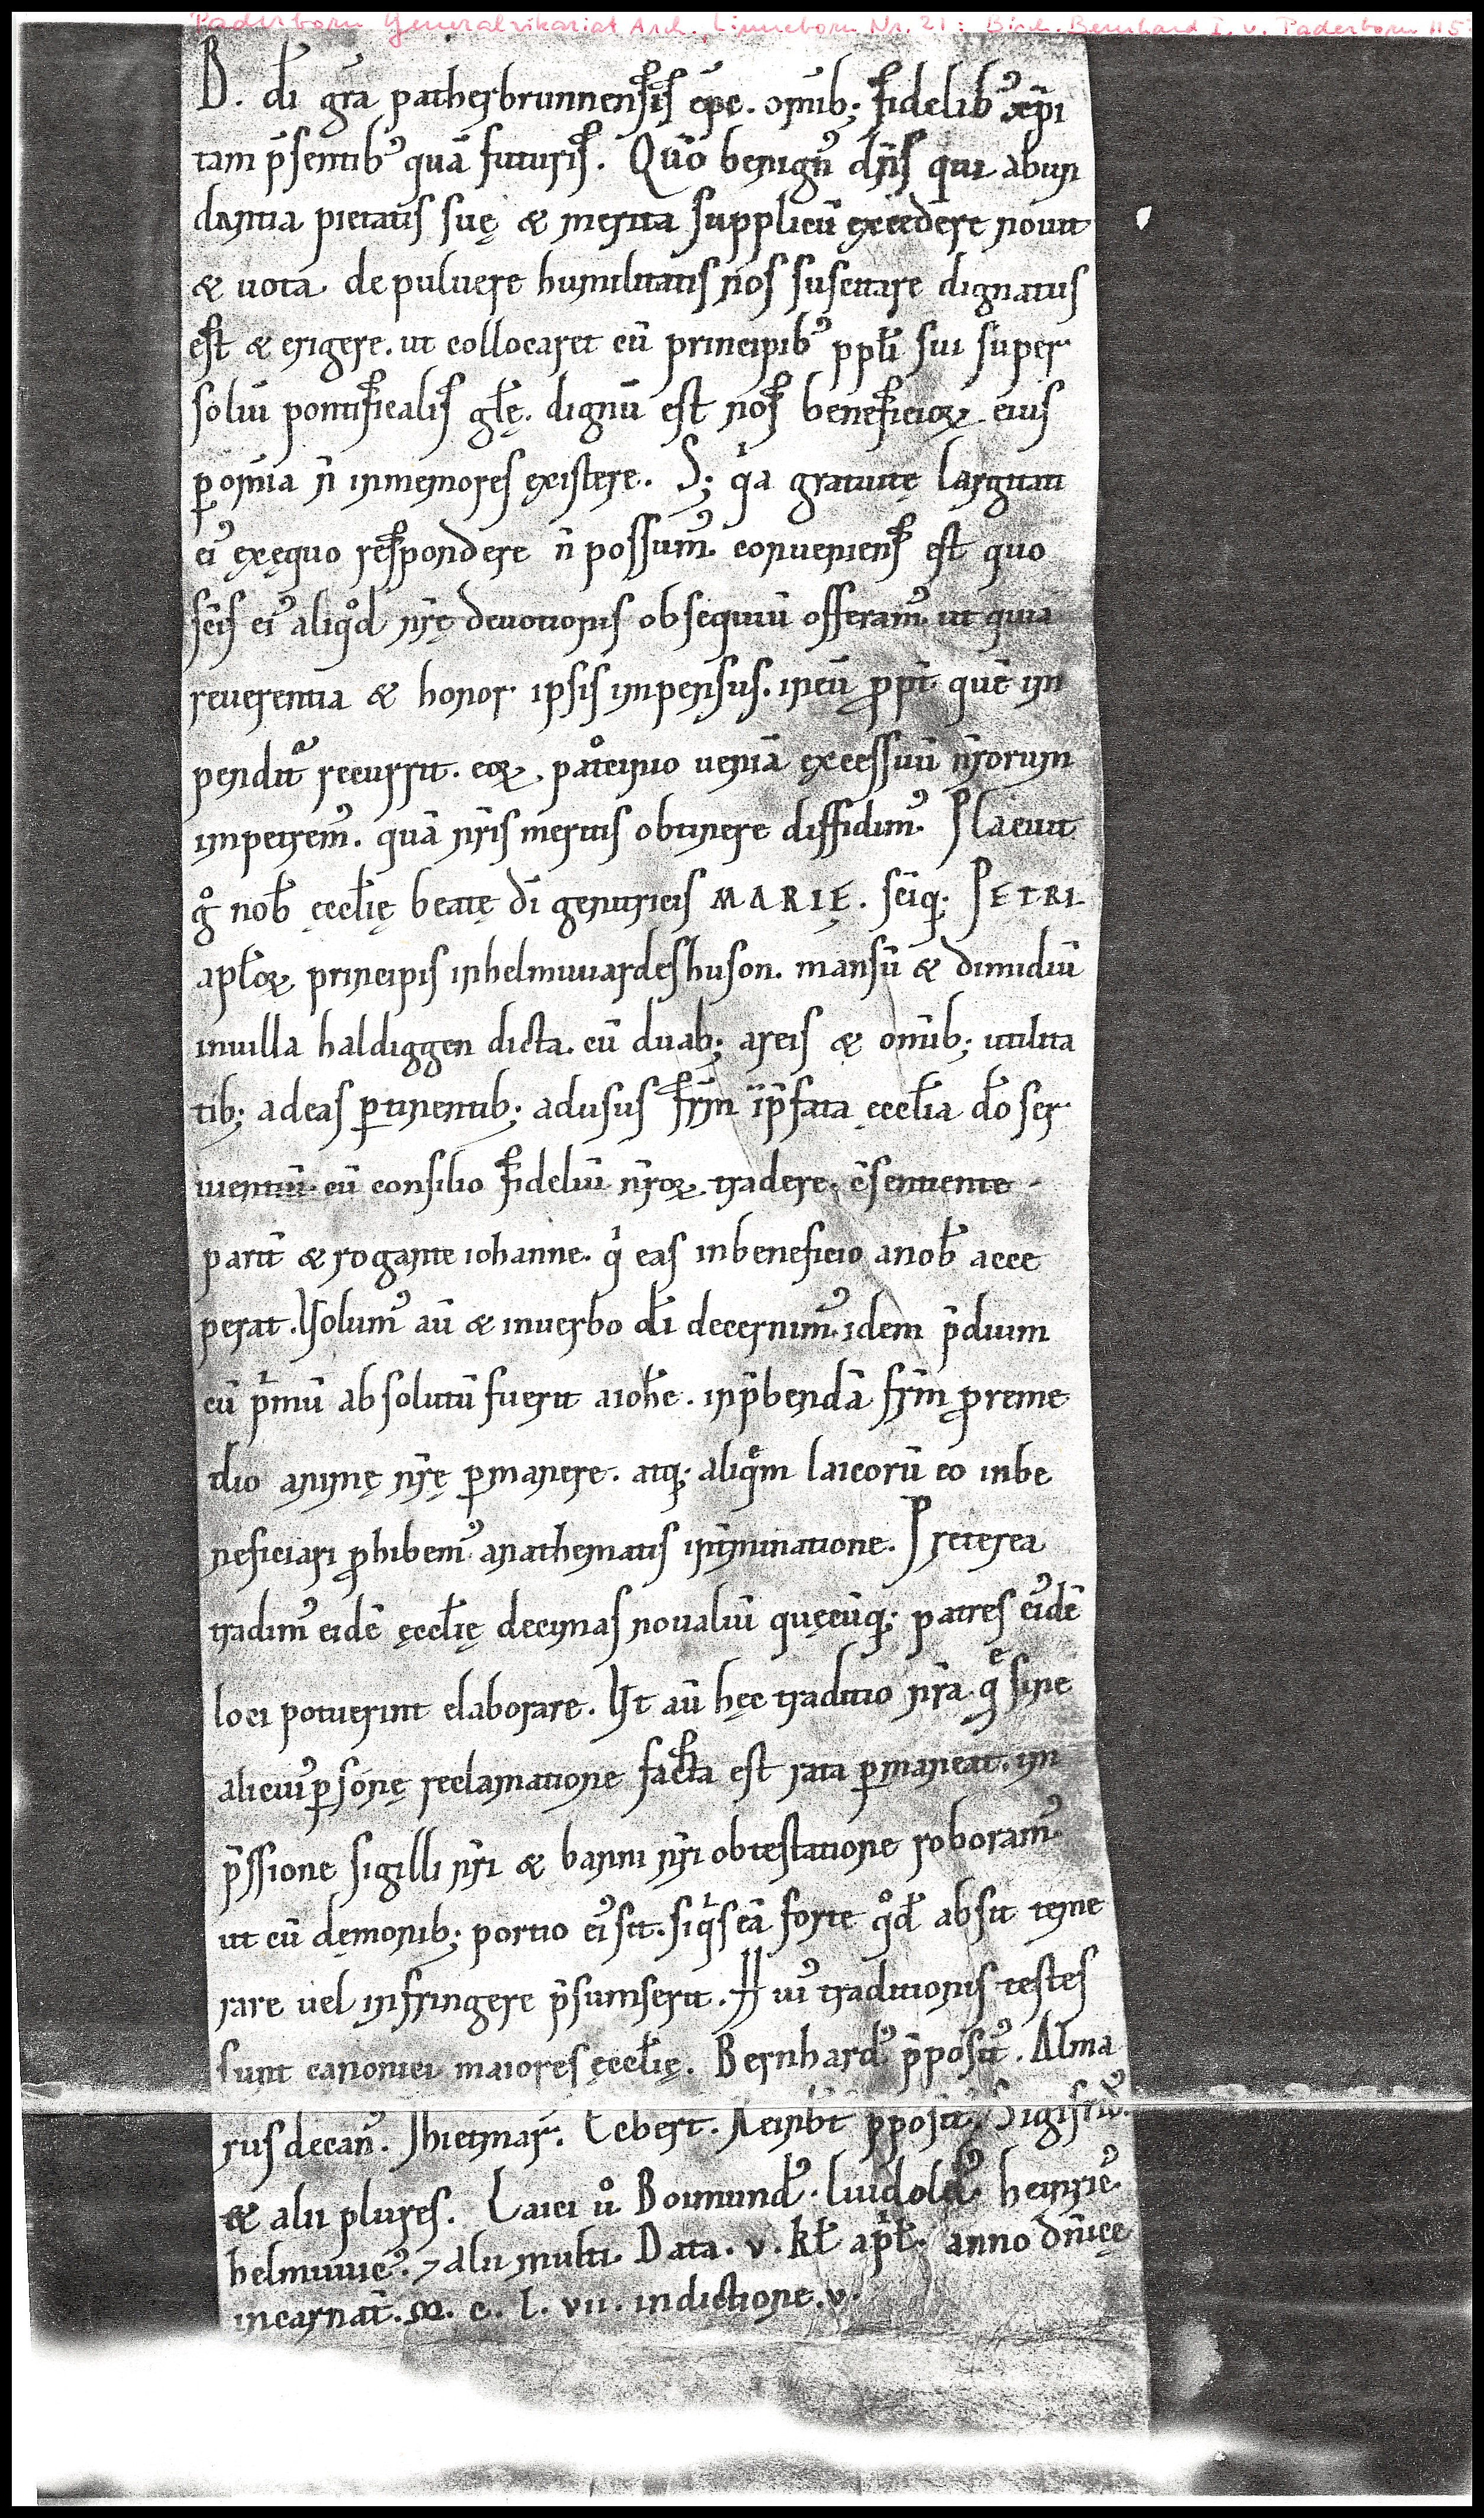 Paderborn Generalvikariat Arch. Linneborn Nr. 21: Bisch. Bernhard I. v. Paderborn 115
B. dī gr̄a patherbrunnensis ep̄c. om̄ib; fidelibꝰ xp̄i
tam p̄sentibꝰ quā futuris. Qūo benignꝰ dn̄s qui abun
dantia pietatis suę & merita supplicū excedere nouit
& uota. de puluere humilitatis nos suscitare dignatus
est & erigere. ut collocaret cū principibꝰ ppl̄i sui super
soliū pontificalis gl̄ę. dignū est nos beneficioꝝ eius
ꝑ om̄ia n̄ inmemores existere. S; qⁱa gratuitę largitati
eiꝰ exęquo respondere n̄ possumꝰ. conueniens est quo
sc̄is eiꝰ aliqͦd nr̄ę deuotionis obsequiū offeramꝰ. ut quia
reuerentia & honor ipsis inpensus. in eū ꝓpt̄ quē in
pendit᷑ recurrit. eoꝝ patͦcinio ueniā excessuū nr̄orum
impetremꝰ. quā nr̄is meritis obtinere diffidimꝰ. Placuit
gͦ nob̄ ęccl̄ię beatę dī genitricis MARIĘ. sc̄iq; PETRI
apl̄oꝝ principis in helmuuardeshuson. mansū & dimidiū
in uilla haldiggen dicta. cū duab; areis & om̄ib; utilita
tib; ad eas ꝑtinentib; ad usus fr̄m ī p̄fata ęccl̄ia dō ser
uientiū. cū consilio fideliū nr̄oꝝ tradere. c̄sentiente
parit̄ & rogante iohanne. qⁱ eas in beneficio a nob̄ acce
perat. Volumꝰ aū & in uerbo dī decernimꝰ. idem p̄dium
cū pⁱmū absolutū fuerit a ioh̄e. in p̄bendā fr̄m ꝓ reme
dio animę nr̄ę ꝑmanere. atq; aliqͤm laicorū eo inbe
neficiari ꝓhibemꝰ anathematis int̄minatione. Preterea
tradimꝰ eidē ęccl̄ię decimas noualiū quęcūq; patres eiꝰdē
loci potuerint elaborare. Vt aū hęc traditio nr̄a. qͤ sine
alicuiꝰ ꝑsonę reclamatione facta est rata ꝑmaneat. im
p̄ssione sigilli nr̄i & banni nr̄i obtestatione roboramꝰ.
ut cū dęmonib; portio eiꝰ sit. si qⁱs eā forte qͦd absit teme
rare uel infringere p̄sumserit. Huiꝰ traditionis testes
sunt canonici maioris ęccl̄ię. Bernhardꝰ p̄positꝰ. Alma
rus decanꝰ. Thietmarꝰ. Ecbert. Reinb̄t p̄positꝰ. Sigifridꝰ.
& alii plures. Laici uͦ Boimundꝰ. luidoldꝰ. heinricꝰ.
helmuuicꝰ. ⁊ alii multi. Data. v. kl̄ apl̄. anno dn̄icę
incarnat̄. M. c. l. vii. indictione. v.